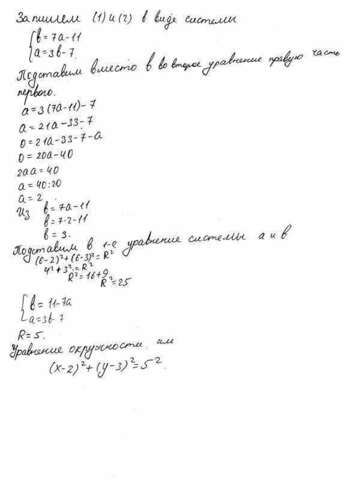 Запишем (1) и (2) в виде системы
{ в = 7а - 11
{ а = 3в - 7.
Подставим вместо в во второе уравнение правую часть
первого.
а = 3 (7а - 11) - 7
а = 21а - 33 - 7
0 = 21а - 33 - 7 - а
0 = 20а - 40
20а = 40
а = 40 : 20
а = 2.
Из в = 7а - 11
в = 7·2 - 11
в = 3.
Подставим в 1-е уравнение системы а и в
(6-2)² + (6-3)² = R²
4² + 3² = R²
R² = 16 + 9
R² = 25
{ в = 11 - 7а
{ а = 3в - 7
R = 5.
Уравнение окружности
(x-2)² + (y-3)² = 5²